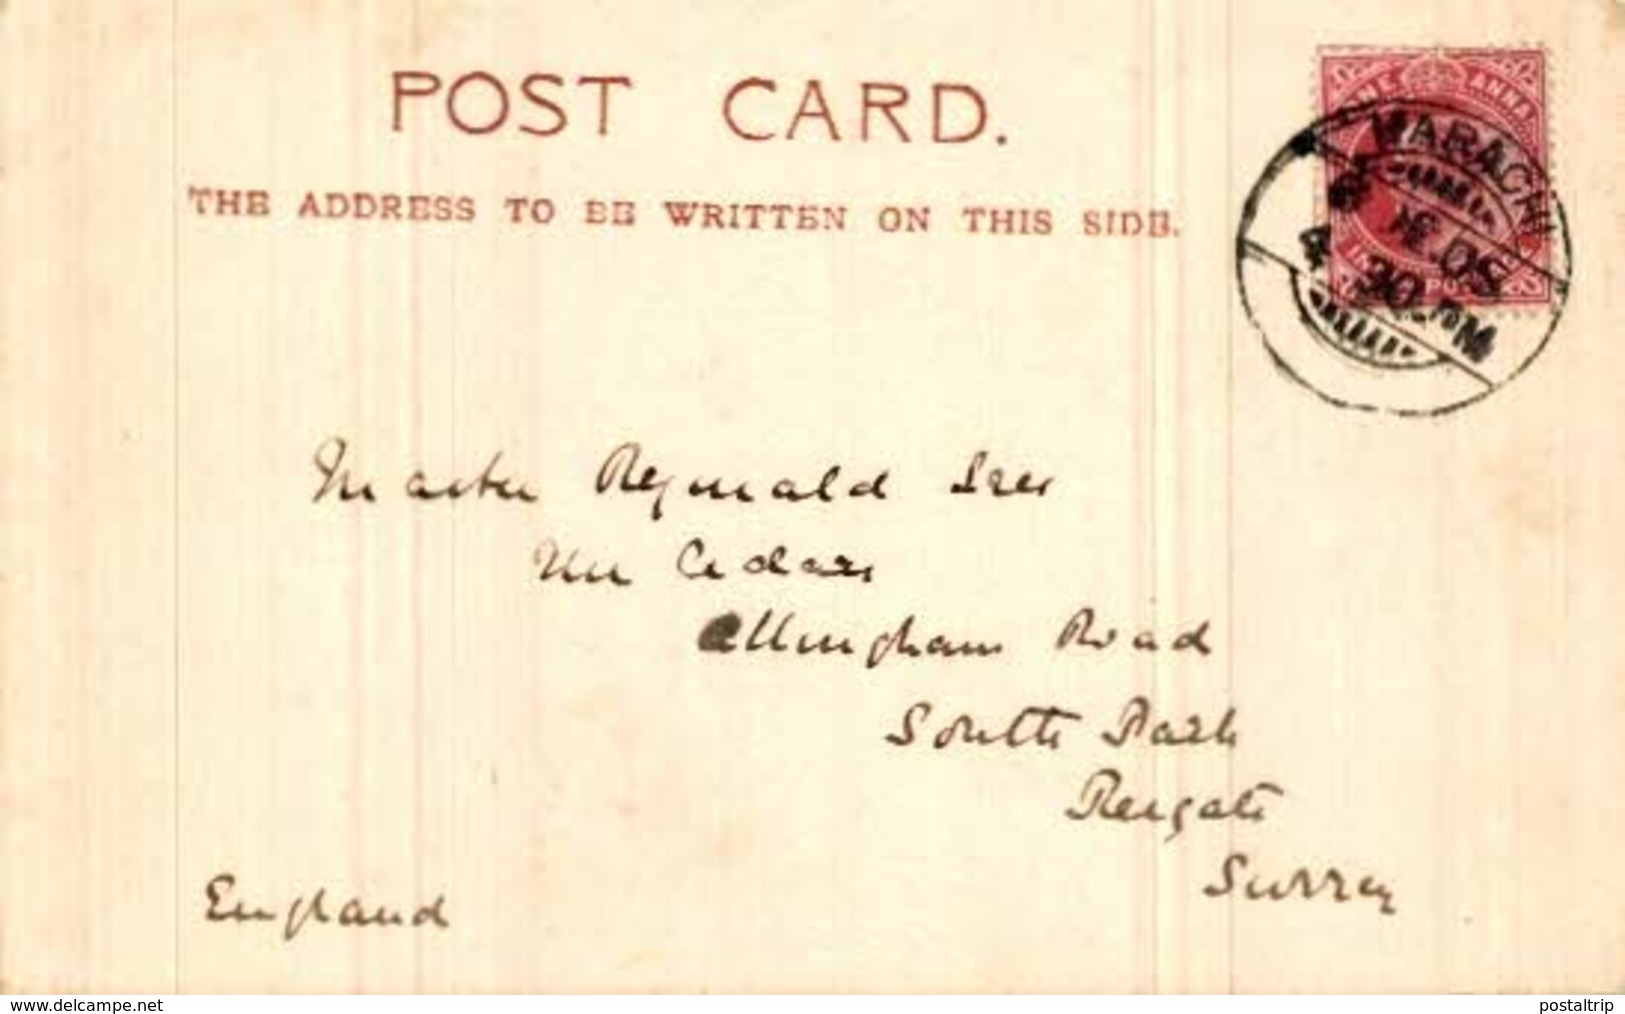 POST CARD.
THE ADDRESS TO BE WRITTEN ON THIS SIDE.
ONE ANNA
KARACHI
05
4 30 PM
Master Reginald
The Cedars
Allingham Road
South Park
Reigate
Surrey
England
www.delcampe.net
postaltrip